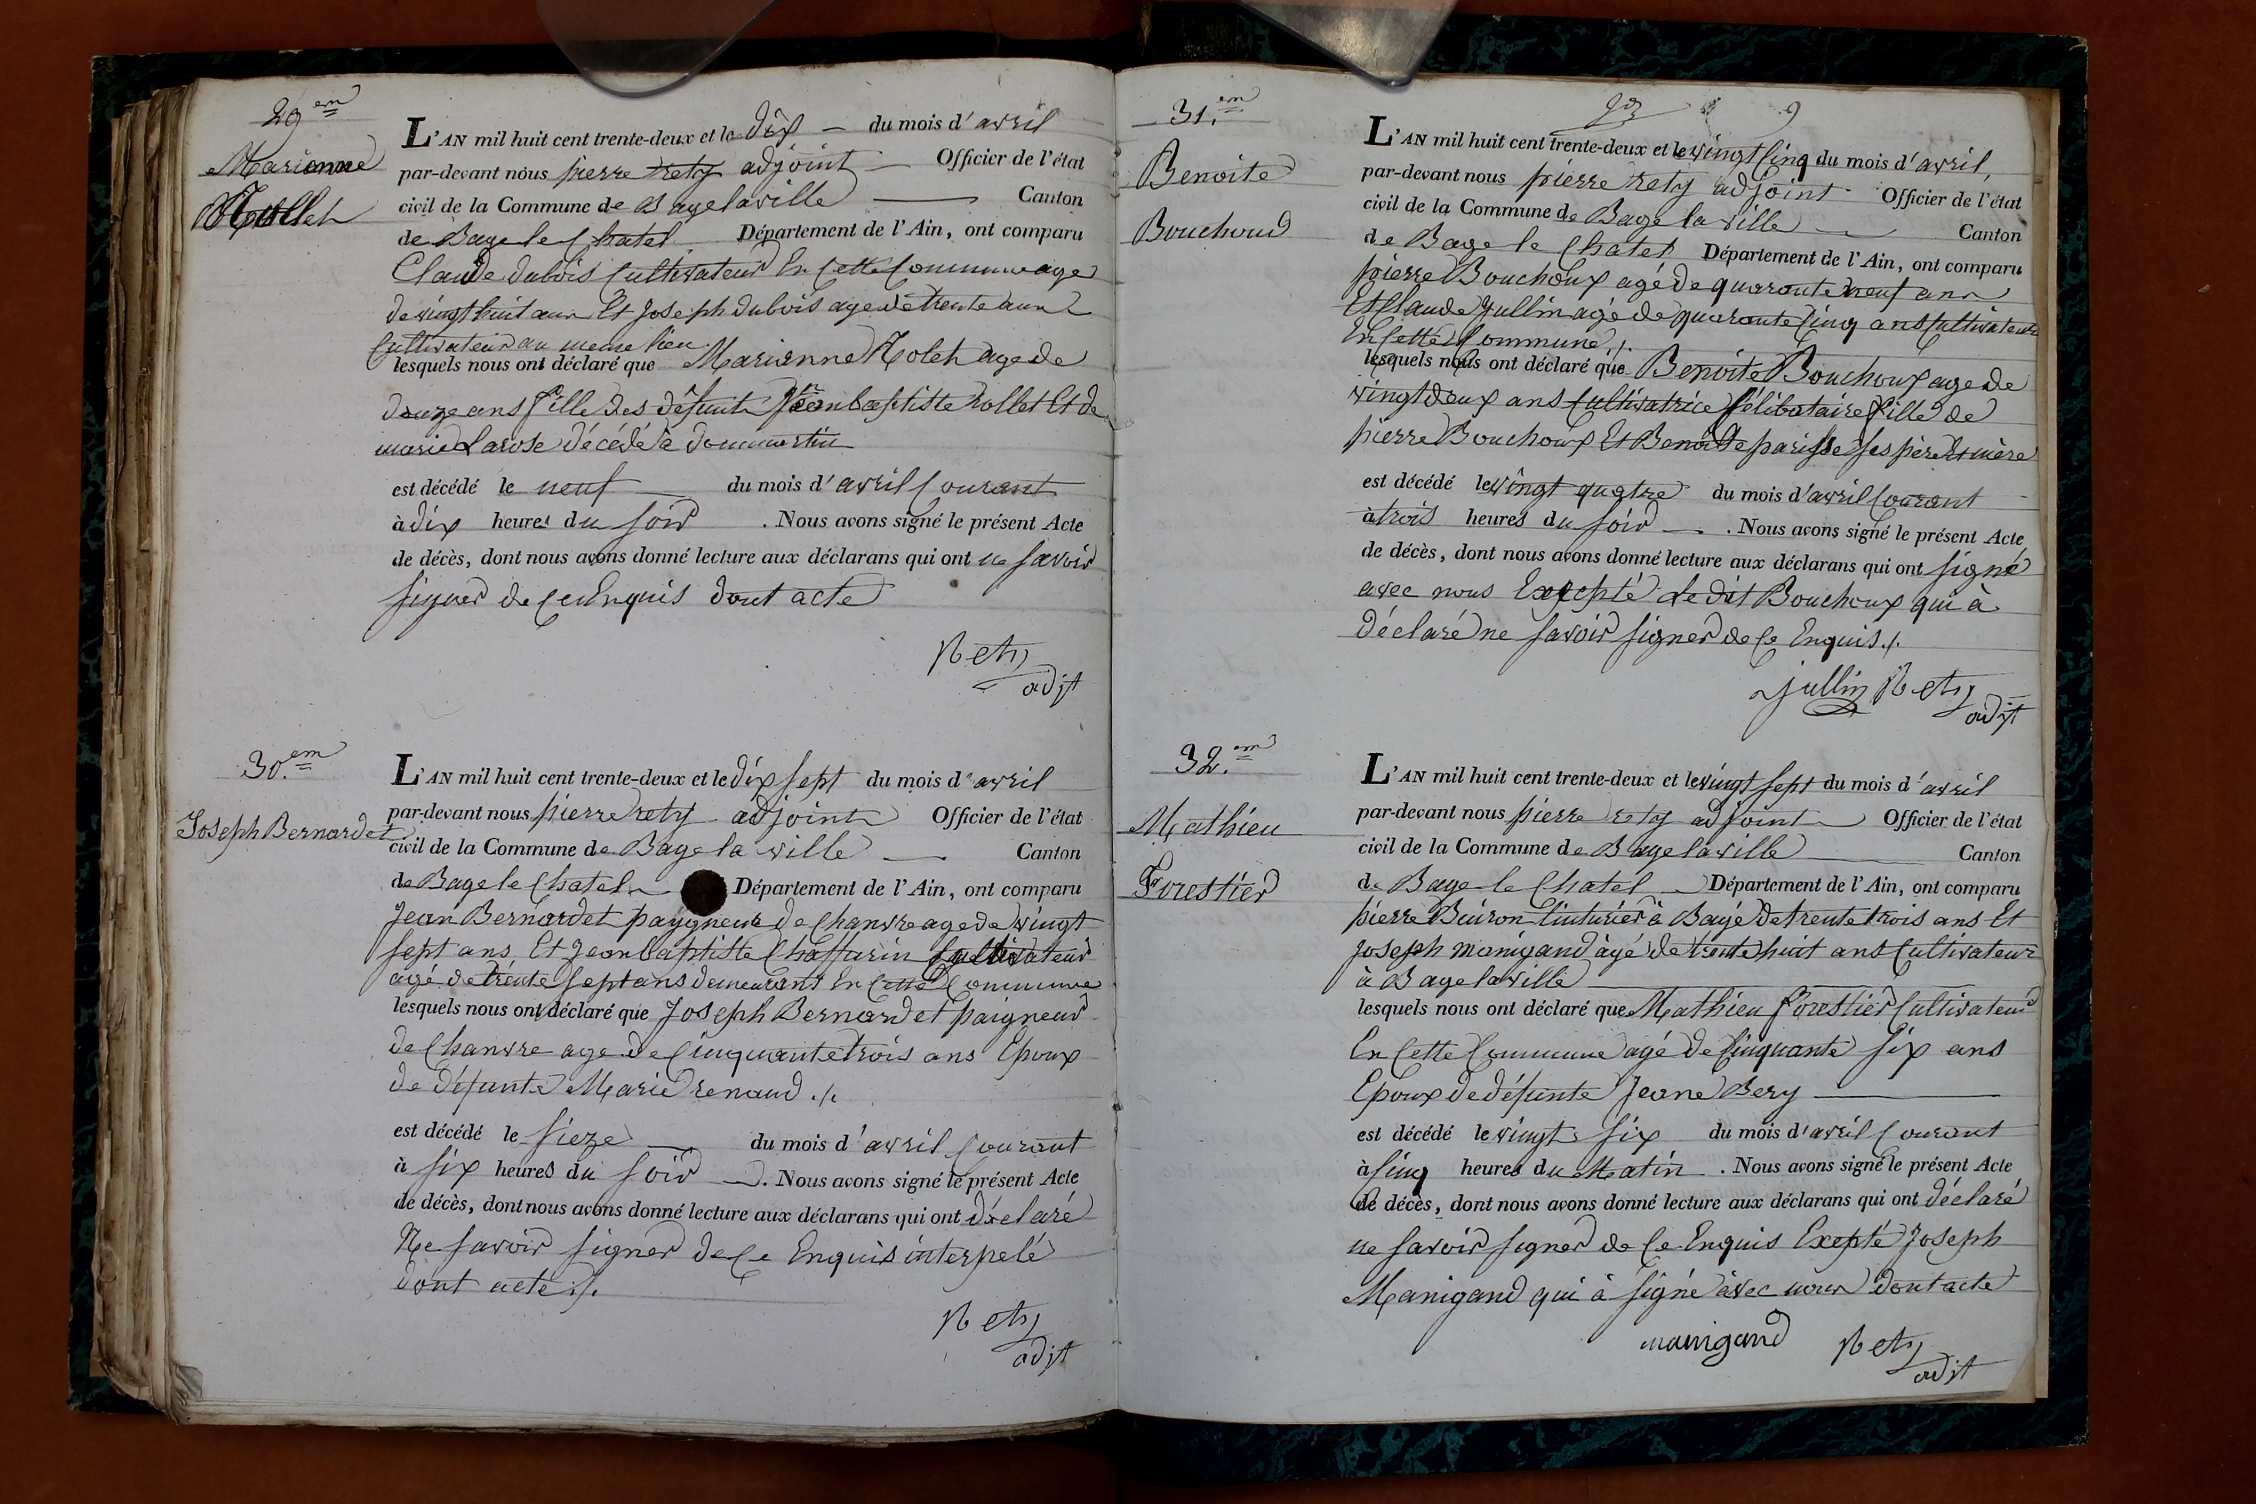 29em
Marianne
Rollet
L'AN mil huit cent trente-deux et le dix du mois d'avril
par-devant nous pierre rety adjoint Officier de l'état
civil de la Commune de Bagelaville Canton
de Bage le Chatel Département de l'Ain, ont comparu
Claude dubois Cultivateur En Cette Commune age
de vingt huit ans Et Joseph dubois age de trente ans
Cultivateur au meme lieu
lesquels nous ont déclaré que Marianne Rolet age de
douze ans fille des défunt Jean baptiste rollet Et de
marie Larose décédé a dommartin
est décédé le neuf du mois d'avril Courant
à dix heures du soir . Nous avons signé le présent Acte
de décès, dont nous avons donné lecture aux déclarans qui ont ne savoir
signer de Ce Enquis dont acte
Rety
adjt
30.em
Joseph Bernardet
L'AN mil huit cent trente-deux et le dix sept du mois d'avril
par-devant nous pierre rety adjoint Officier de l'état
civil de la Commune de Bage la ville Canton
de Bage le Chatel Département de l'Ain, ont comparu
Jean Bernardet paygneur de Chanvre age de vingt
sept ans, Et Jean baptiste Chaffurin Cultivateur
agé de trente sept ans demeurant En Cette Commune
lesquels nous ont déclaré que Joseph Bernardet paigneur
de Chanvre age de Cinquante trois ans Epoux
de défunte Marie renaud ./.
est décédé le sieze du mois d'avril Courant
à six heures du soir . Nous avons signé le présent Acte
de décès, dont nous avons donné lecture aux déclarans qui ont déclaré
Ne savoir signer de Ce Enquis interpelé
dont acte ./.
Rety
adjt
31.em
Benoite
Bouchoud
9
L'AN mil huit cent trente-deux et le vingt Cinq du mois d'avril,
par-devant nous pierre rety adjoint Officier de l'état
civil de la Commune de Bage la ville Canton
de Bage le Chatel Département de l'Ain, ont comparu
pierre Bouchoux agé de quarante neuf ans
Et Claude Jullin agé de quarante Cinq ans Cultivateurs
En Cette Commune ./.
lesquels nous ont déclaré que Benoite Bouchoux age de
vingt deux ans Cultivatrice Célibataire fille de
pierre Bouchoux Et Benoitte parisse ses père Et mère
est décédé le vingt quatre du mois d'avril Courant
à trois heures du soir . Nous avons signé le présent Acte
de décès, dont nous avons donné lecture aux déclarans qui ont signé
avec nous Excepté Le dit Bouchoux qui à
déclaré ne savoir signer de Ce Enquis ./.
Jullin Rety
adjt
32.em
Mathieu
Forestier
L'AN mil huit cent trente-deux et le vingt sept du mois d'avril
par-devant nous pierre rety adjoint Officier de l'état
civil de la Commune de Bagelaville Canton
de Bage le Chatel Département de l'Ain, ont comparu
pierre Buiron tinturier à Bagé de trente trois ans Et
Joseph manigand àgé de trente huit ans Cultivateur
à Bagelaville
lesquels nous ont déclaré que Mathieu forestier Cultivateur
En Cette Commune agé de Cinquante six ans
Epoux de défunte Jeane Bery
est décédé le vingt six du mois d'avril Courant
à Cinq heures du Matin . Nous avons signé le présent Acte
de décès, dont nous avons donné lecture aux déclarans qui ont déclaré
ne savoir signer de Ce Enquis Exepté Joseph
Manigand qui à signé avec nous dont acte
manigand Rety
adjt